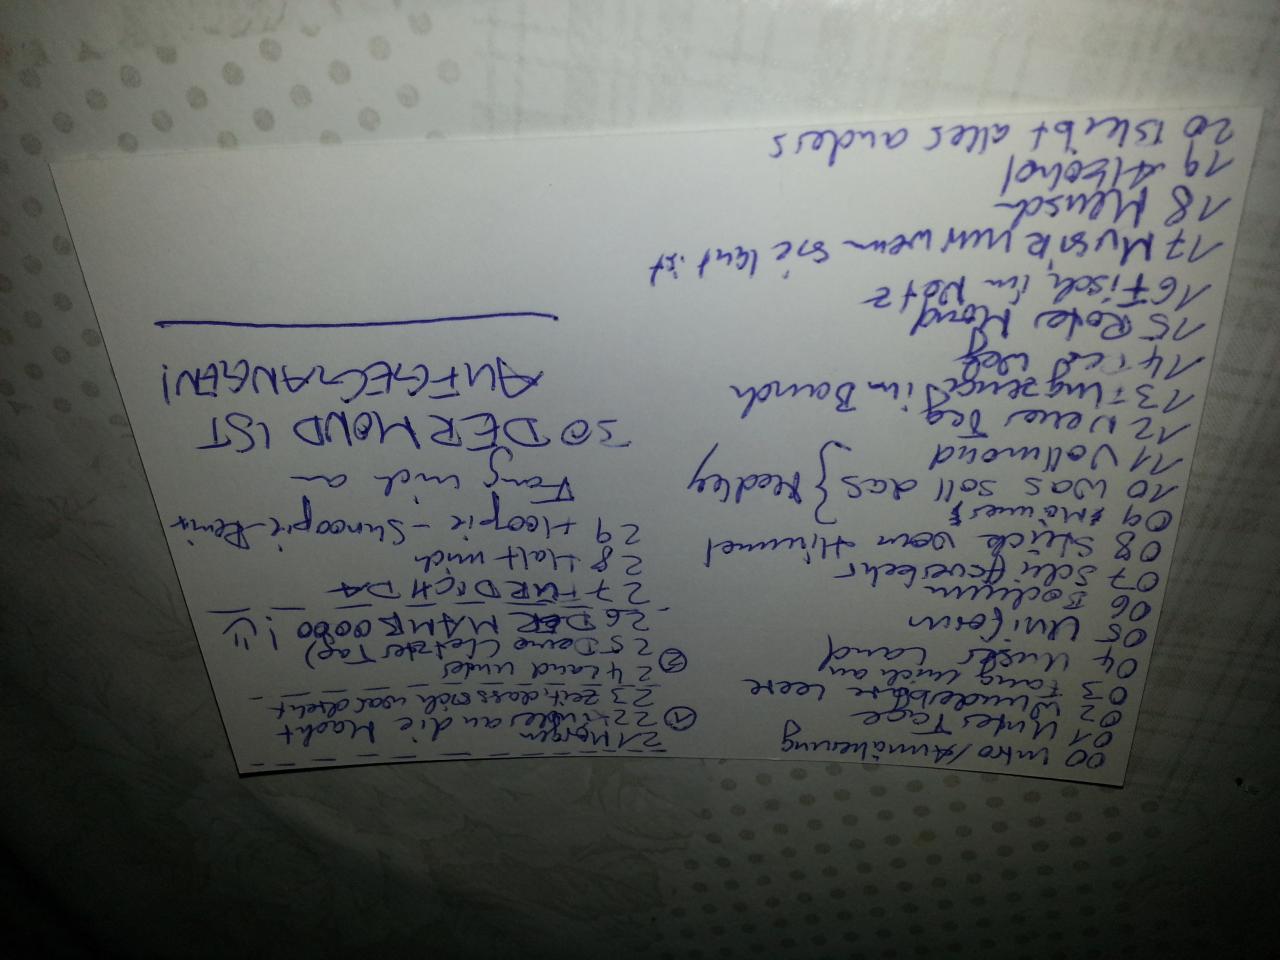 00 Intro/Annäherung
01 Unter Tage
02 Wunderbare Leere
03 Fang mich an
04 Unser Land
05 Uniform
06 Bochum
07 Schiffsverkehr
08 Stück vom Himmel
09 Männer
10 Was soll das } Medley
11 Vollmond
12 Neuer Tag
13 Flugzeuge im Bauch
14 der Weg
15 Roter Mond
16 Fisch im Netz
17 Musik nur wenn sie laut ist
18 Mensch
19 Alkohol
20 Bleibt alles anders
21 Morgen
① 22 Kinder an die Macht
23 Zeit, dass sich was dreht
② 24 Land unter
25 Deine (letzter Tag)
26 DER MAMBOOOO !
27 FÜR DICH DA
28 Halt mich
29 Hoopie-Shnoopie-Remix
Fang mich an
30 DER MOND IST
AUFGEGANGEN!